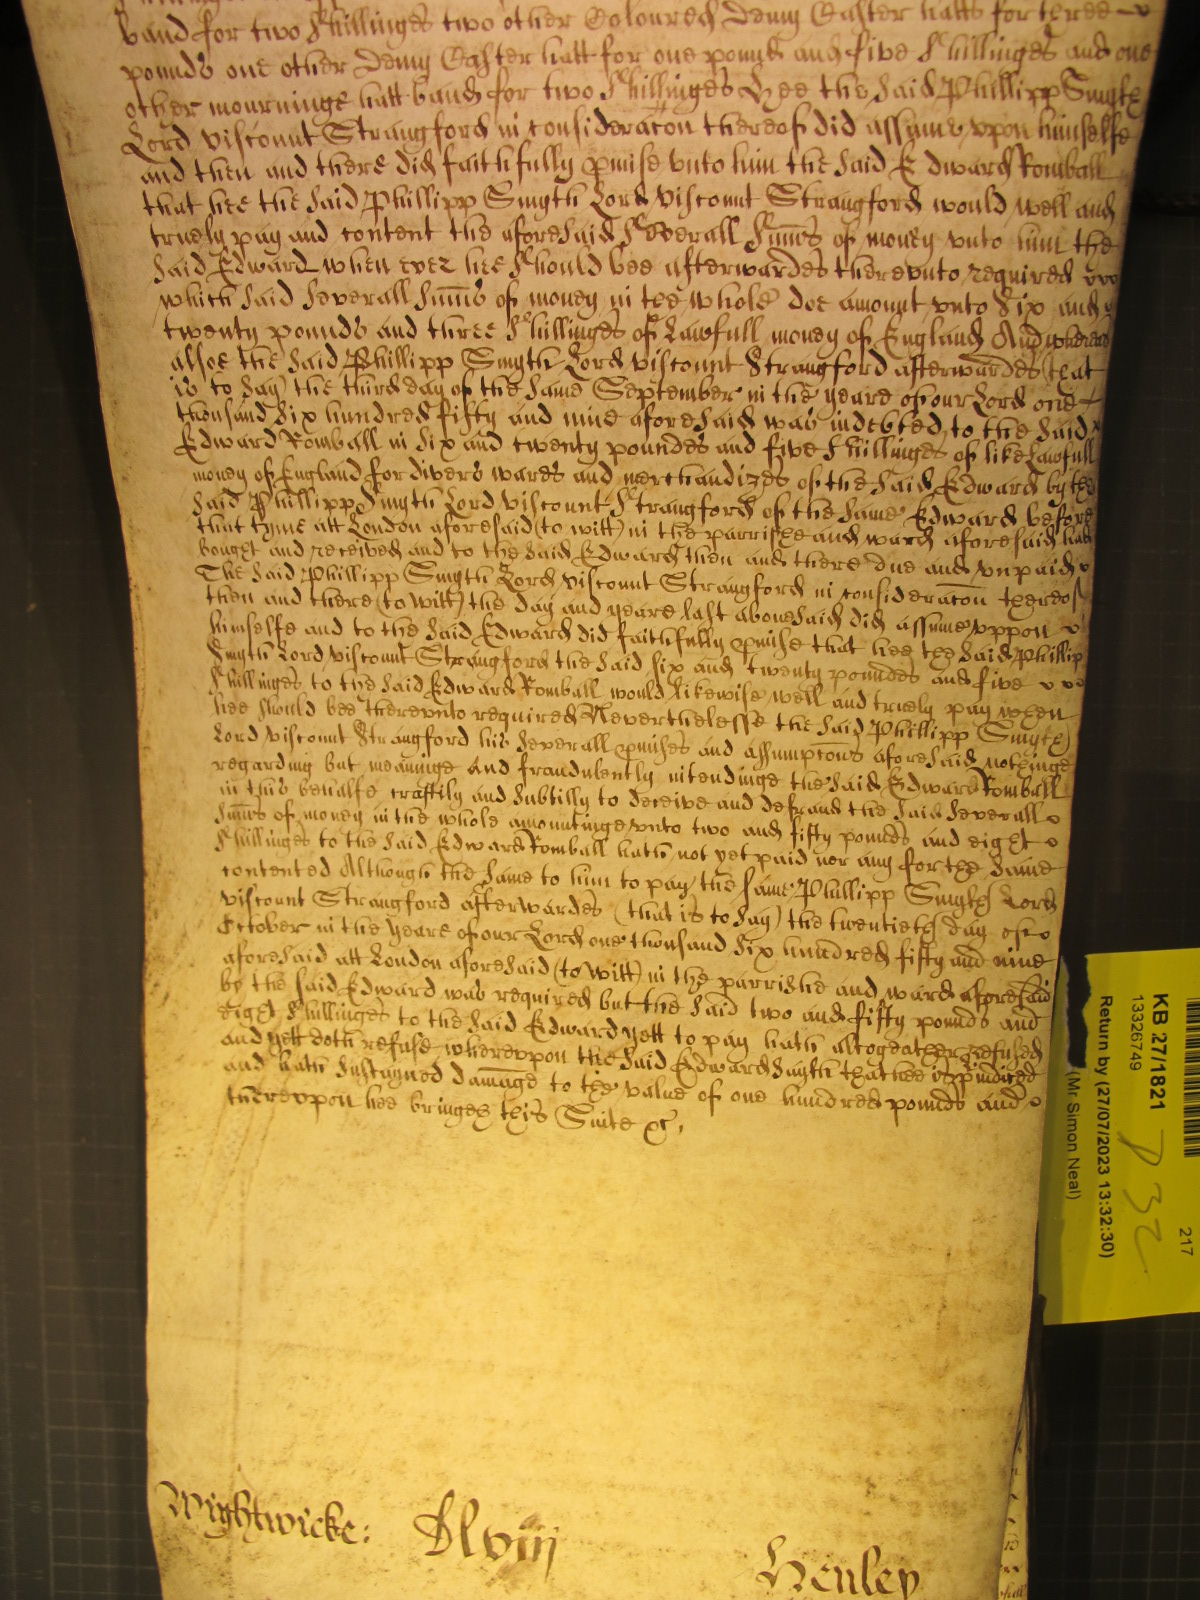 band for two shillinges two other Coloured Demy Caster hatts for three
pounds one other Demy Caster hatt for one pound and five shillinges and one
other mourninge hatt band for two shillinges Hee the said Phillipp Smyth
Lord viscount Strangford in consideracon thereof did assume vpon himselfe
and then and there did faithfully pmise vnto him the said Edward Romball
that hee the said Phillipp Smyth Lord viscount Strangford would well and
truely pay and content the aforesaid severall sumes of money vnto him the
said Edward when ever hee should bee afterwardes therevnto required
which said severall sumes of money in the whole doe amount vnto six and
twenty pounds and three shillinges of Lawfull money of England And whereas
alsoe the said Phillipp Smyth Lord viscount Strangford afterwardes that
is to say the third day of the same September in the yeare of our Lord one
thousand six hundred fifty and nine aforesaid was indebted to the said
Edward Romball in six and twenty poundes and five shillinges of like Lawfull
money of England for divers wares and merchandizes of the said Edward by the
said Phillipp Smyth Lord viscount Strangford of the same Edward before
that tyme att London aforesaid (to witt) in the parrishe and ward aforesaid had
bought and received and to the said Edward then and there due and vnpaid
The said Phillipp Smyth Lord viscount Strangford in consideracon thereof
then and there (to witt) the day and yeare last abovesaid did assume vppon
himselfe and to the said Edward did faithfully pmise that hee the said Phillip
Smyth Lord viscount Strangford the said six and twenty poundes and five
shillinges to the said Edward Romball would likewise well and truely pay when
hee should bee therevnto required Neverthelesse the said Phillipp Smyth
Lord viscount Strangford his severall pmises and assumptons aforesaid nothinge
regarding but meaninge and fraudulently intendinge the said Edward Romball
in this behalfe craftily and subtilly to deceive and defraud the said severall
sumes of money in the whole amountinge vnto two and fifty pounds and eight
shillinges to the said Edward Romball hath not yet paid nor any for the same
contented Although the same to him to pay the same Phillipp Smyth Lord
viscount Strangford afterwardes (that is to say) the twentieth day of
October in the yeare of our Lord one thousand six hundred fifty and nine
aforesaid att London aforesaid (to witt) in the parrishe and ward aforesaid
by the said Edward was required but the said two and fifty pounds and
eight shillinges to the said Edward yett to pay hath altogeather refused
and yett doth refuse wherevpon the said Edward sayth that hee is piudiced
and hath sustayned damage to the value of one hundred pounds and
therevpon hee bringes this Suite &c.
Wightwicke: Alvin
Henley
KB 27/1821
13326749
Return by (27/07/2023 13:32:30)
(Mr Simon Neal)
217